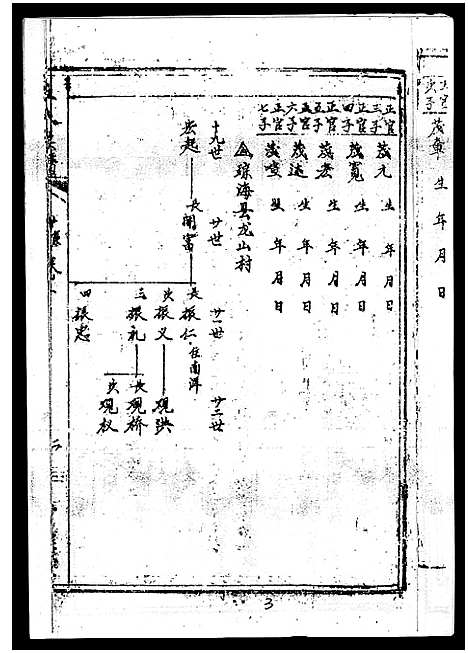 正官次子 茂章 生 年 月 日
正官三子 茂元 生 年 月 日
正官四子 茂寬 生 年 月 日
正官五子 茂宏 生 年 月 日
正官六子 茂遠 生 年 月 日
正官七子 生 年 月 日
琼海县龙山村
十九世 廿世 廿一世 廿二世
宏起 長 開富 長 振仁 住南洋
次 振义 砚洪
三 振礼 長 砚桥
次 砚权
四 振忠
3